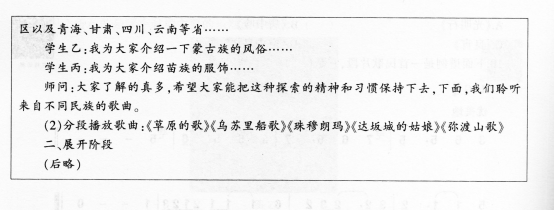 区以及青海、甘肃、四川、云南等省……
学生乙:我为大家介绍一下蒙古族的风俗……
学生丙:我为大家介绍苗族的服饰……
师问:大家了解的真多,希望大家能把这种探索的精神和习惯保持下去,下面,我们聆听
来自不同民族的歌曲。
(2)分段播放歌曲:《草原的歌》《乌苏里船歌》《珠穆朗玛》《达坂城的姑娘》《弥渡山歌》
二、展开阶段
(后略)